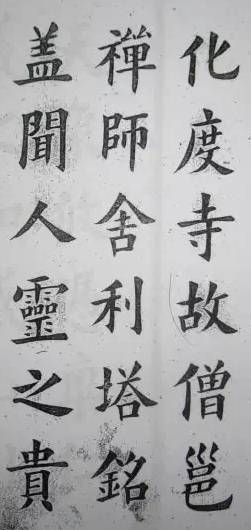 化度寺故僧邕
禪師舍利塔銘
盖聞人靈之貴